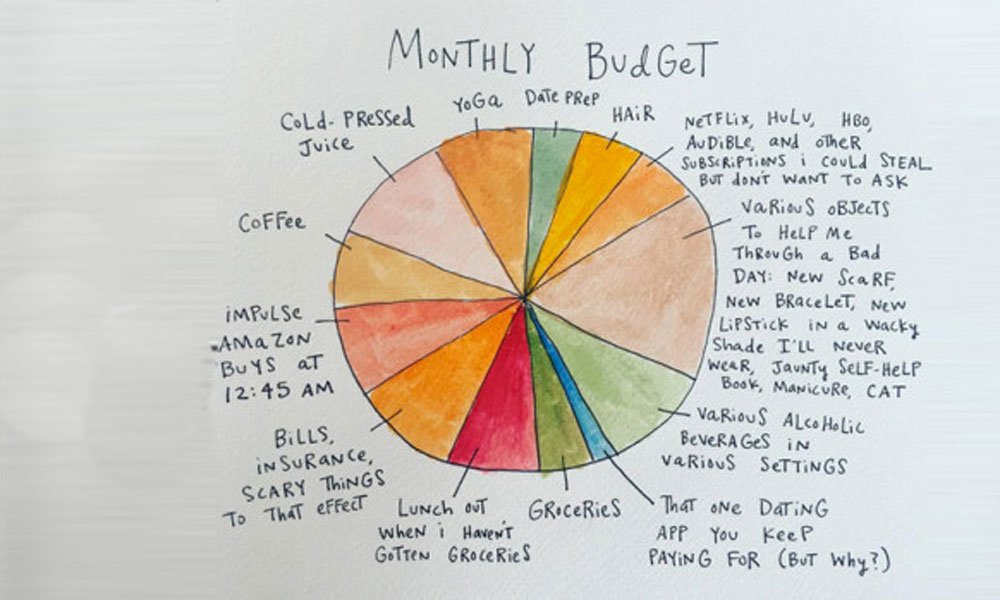 MONTHLY BUDGET
COLD-PRESSED
JUICE
YOGA
DATE PREP
HAIR
NETFLIX, HULU, HBO,
AUDIBLE, AND OTHER
SUBSCRIPTIONS i COULD STEAL
BUT DON'T WANT TO ASK
VARIOUS OBJECTS
TO HELP ME
THROUGH A BAD
DAY: NEW SCARF,
NEW BRACELET, NEW
LIPSTICK IN A WACKY
SHADE I'LL NEVER
WEAR, JAUNTY SELF-HELP
BOOK, MANICURE, CAT
VARIOUS ALCOHOLIC
BEVERAGES IN
VARIOUS SETTINGS
THAT ONE DATING
APP YOU KEEP
PAYING FOR (BUT WHY?)
GROCERIES
LUNCH OUT
WHEN i HAVEN'T
GOTTEN GROCERIES
BILLS,
INSURANCE,
SCARY THINGS
TO THAT EFFECT
IMPULSE
AMAZON
BUYS AT
12:45 AM
COFFEE